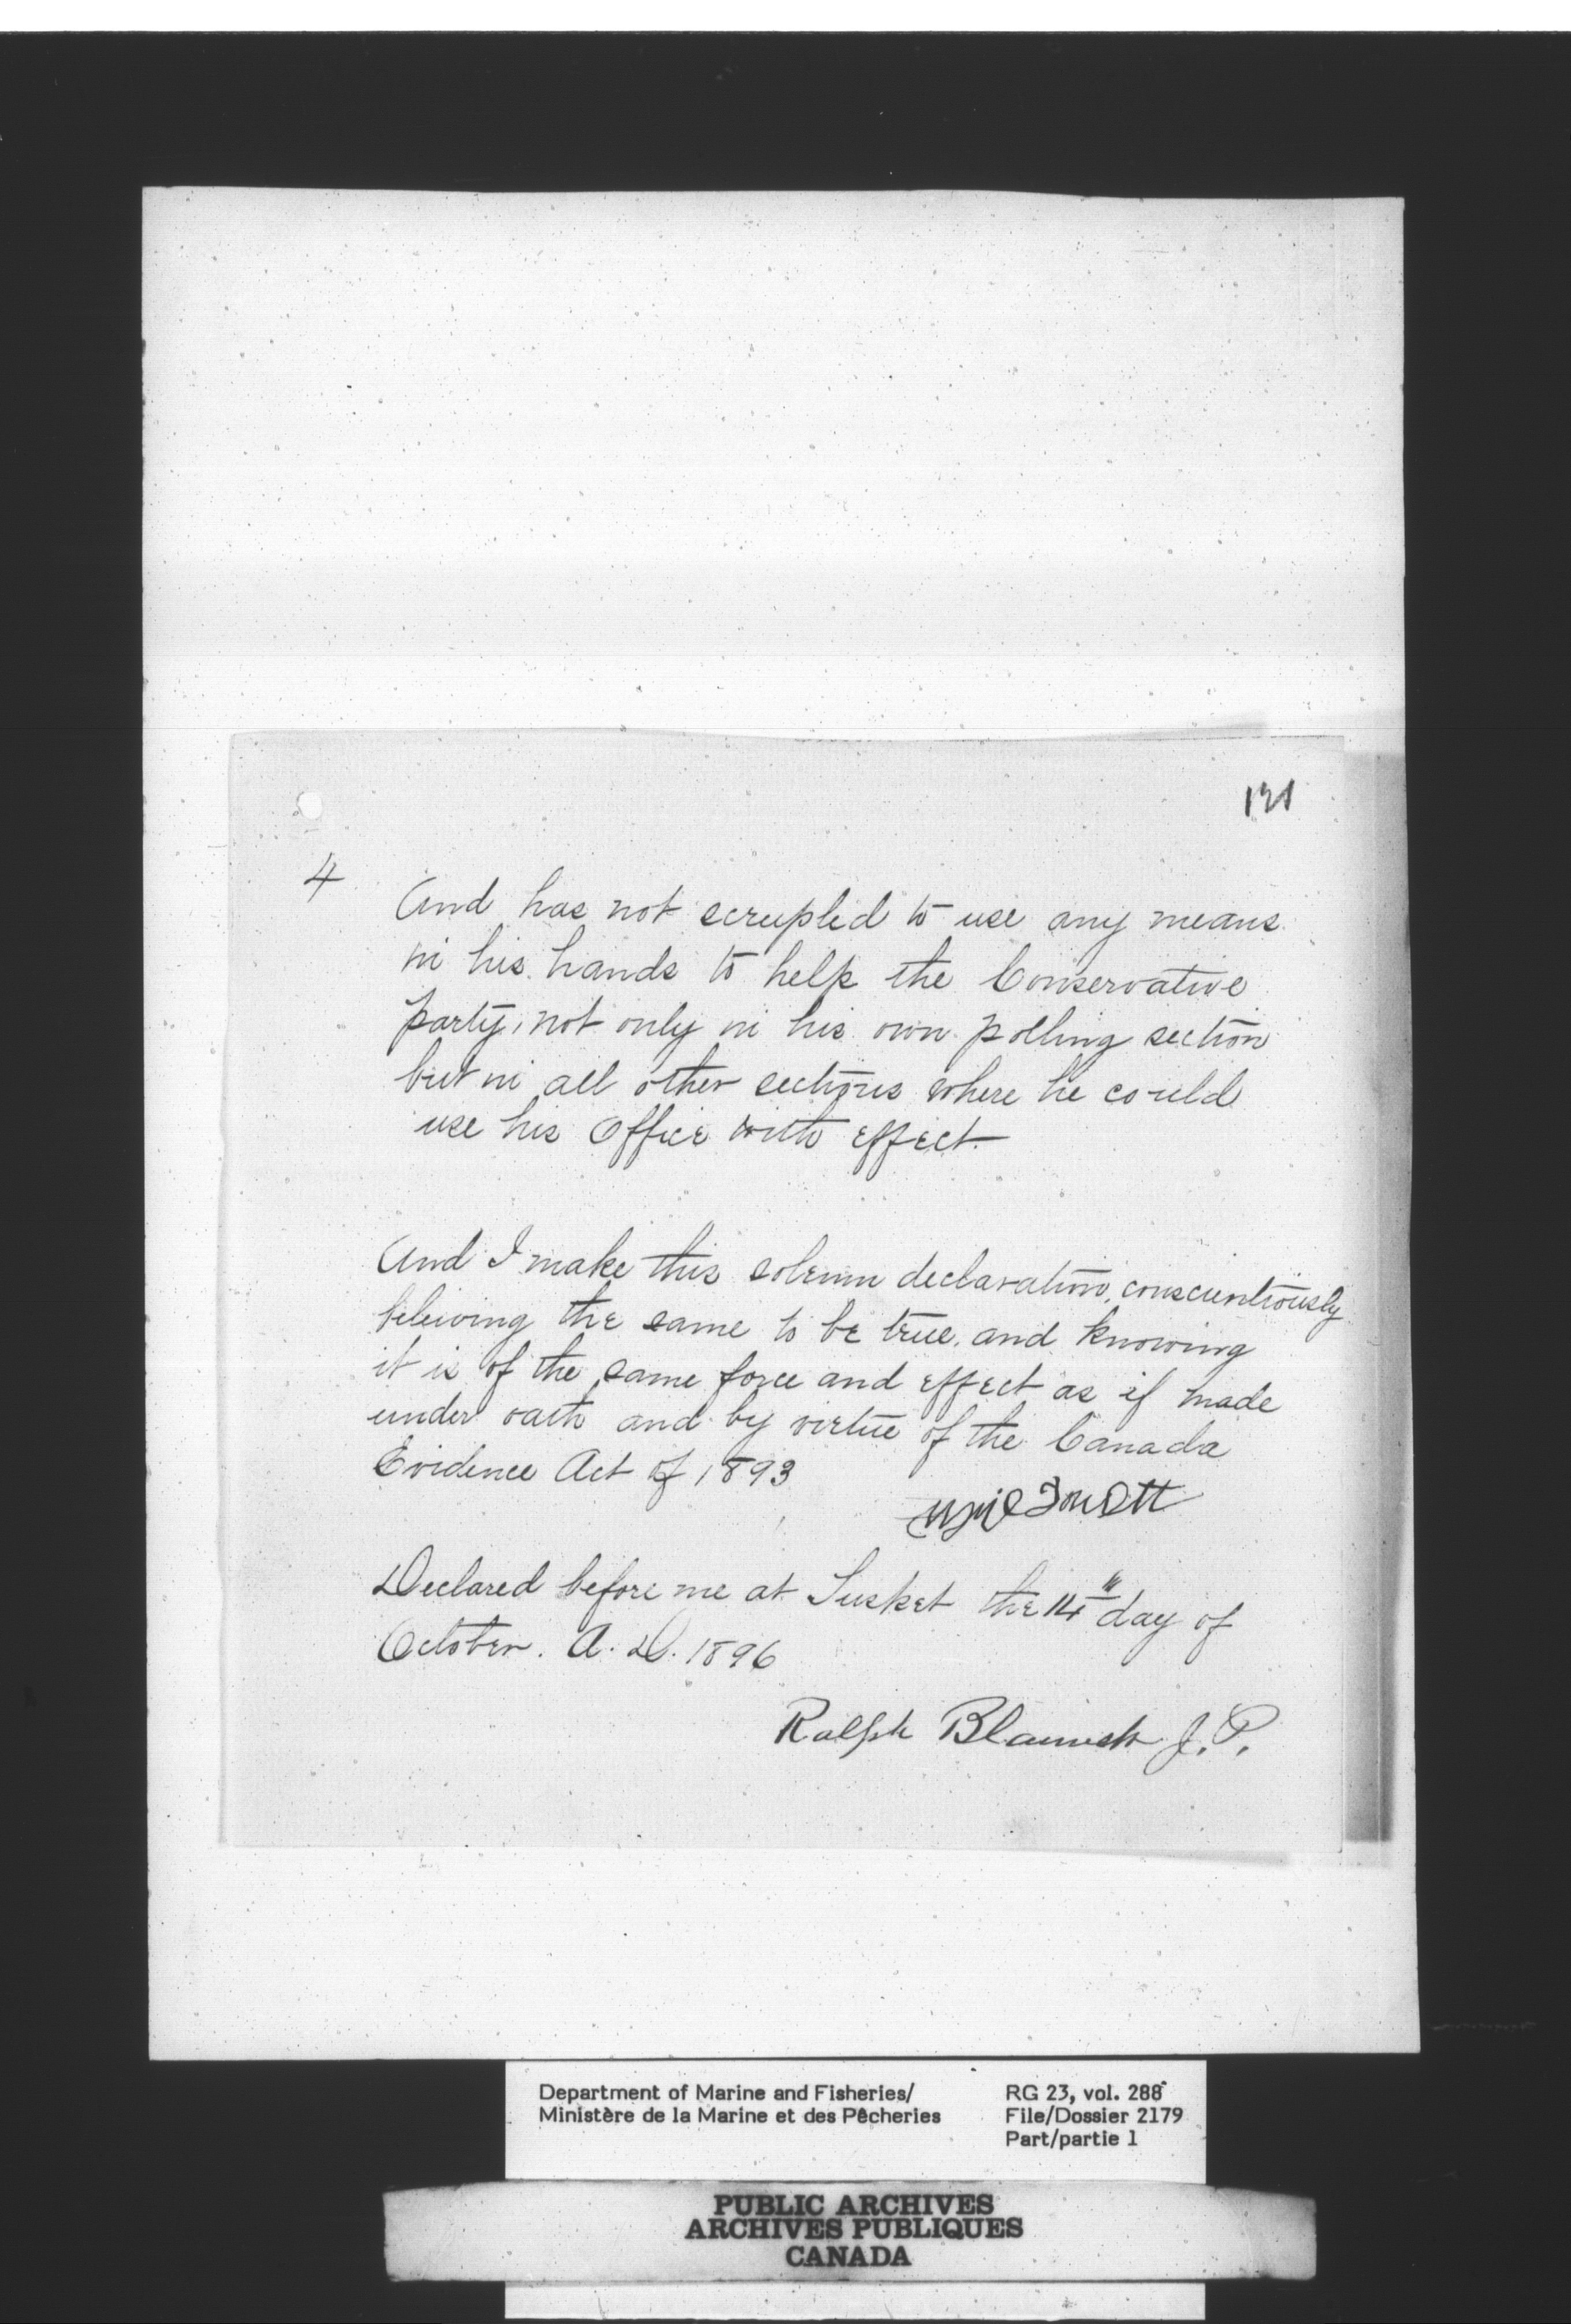 121
4
And has not scrupled to use any means
in his hands to help the Conservative
party, not only in his own polling section
but in all other sections where he could
use his Office with effect.
And I make this solemn declaration, conscientiously
beleiving the same to be true, and knowing
it is of the same force and effect as if made
under oath and by virtue of the Canada
Evidence Act of 1893
Declared before me at Tusket the 14th day of
October. A. D. 1896
Ralph J. P.
Department of Marine and Fisheries/
Ministère de la Marine et des Pêcheries
RG 23, vol. 288
File/Dossier 2179
Part/partie 1
PUBLIC ARCHIVES
ARCHIVES PUBLIQUES
CANADA